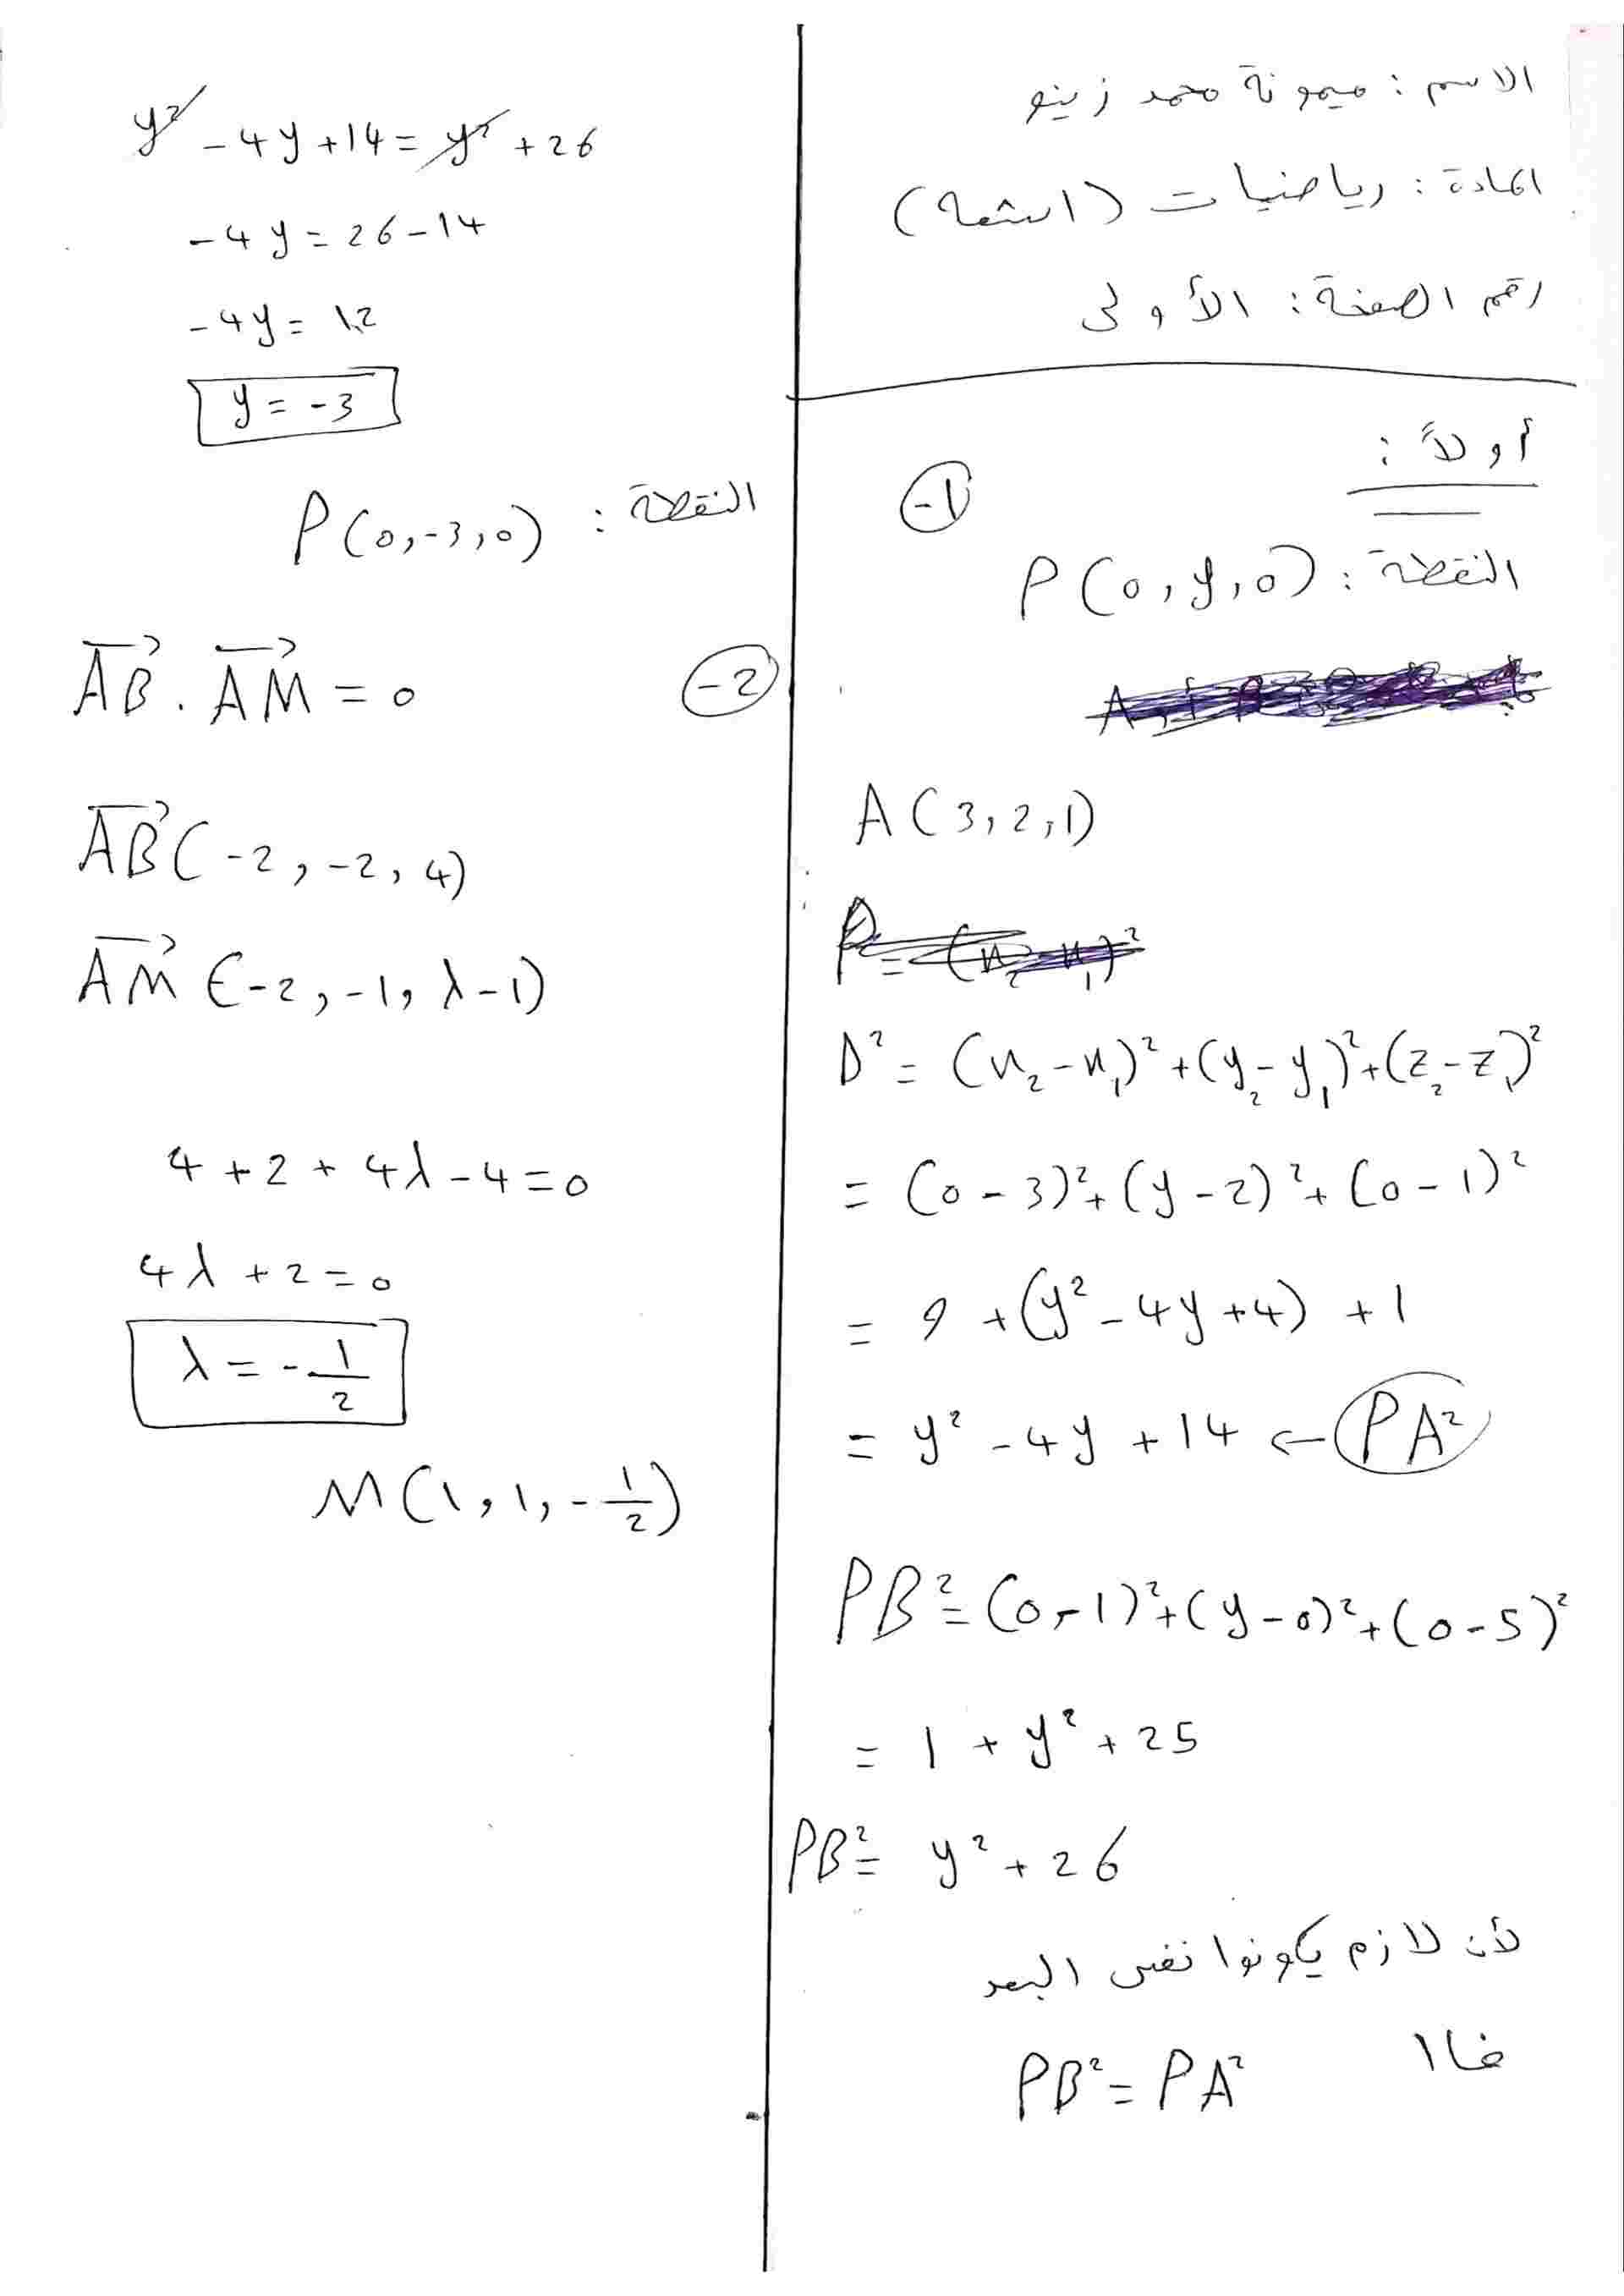 الاسم : ميمونة محمد زينو
المادة : رياضيات (اشعة)
رقم الصفحة : الأولى
أولاً :
-1
النقطة : P(0,y,0)
A(3,2,1)
D² = (x₂-x₁)²+(y₂-y₁)²+(z₂-z₁)²
= (0-3)²+(y-2)²+(0-1)²
= 9 +(y²-4y+4) +1
= y²-4y+14 ← PA²
PB²=(0-1)²+(y-0)²+(0-5)²
= 1 + y² + 25
PB²= y² + 26
لأن لازم يكونوا نفس البعد
فاا PB²= PA²
y² - 4y + 14 = y² + 26
-4y = 26-14
-4y = 12
y = -3
النقطة : P(0,-3,0)
-2
AB⃗ . AM⃗ = 0
AB⃗ (-2, -2, 4)
AM⃗ (-2, -1, λ-1)
4 + 2 + 4λ - 4 = 0
4λ + 2 = 0
λ = -1/2
M(1, 1, -1/2)